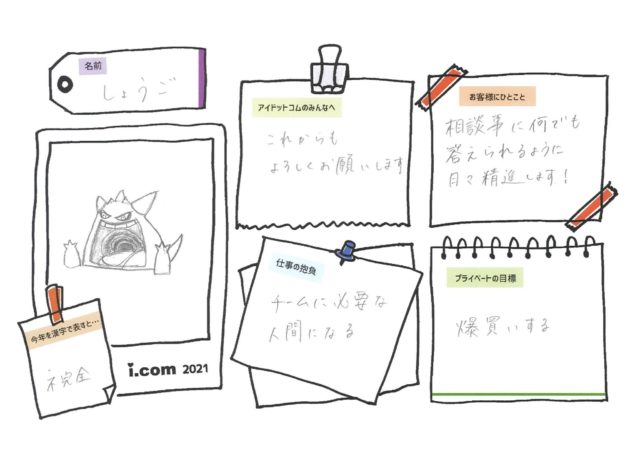 名前
しょうご
アイドットコムのみんなへ
これからも
よろしくお願いします
お客様にひとこと
相談事に何でも
答えられるように
日々精進します!
今年を漢字で表すと…
i.com 2021
仕事の抱負
チームに必要な
人間になる
プライベートの目標
爆買いする